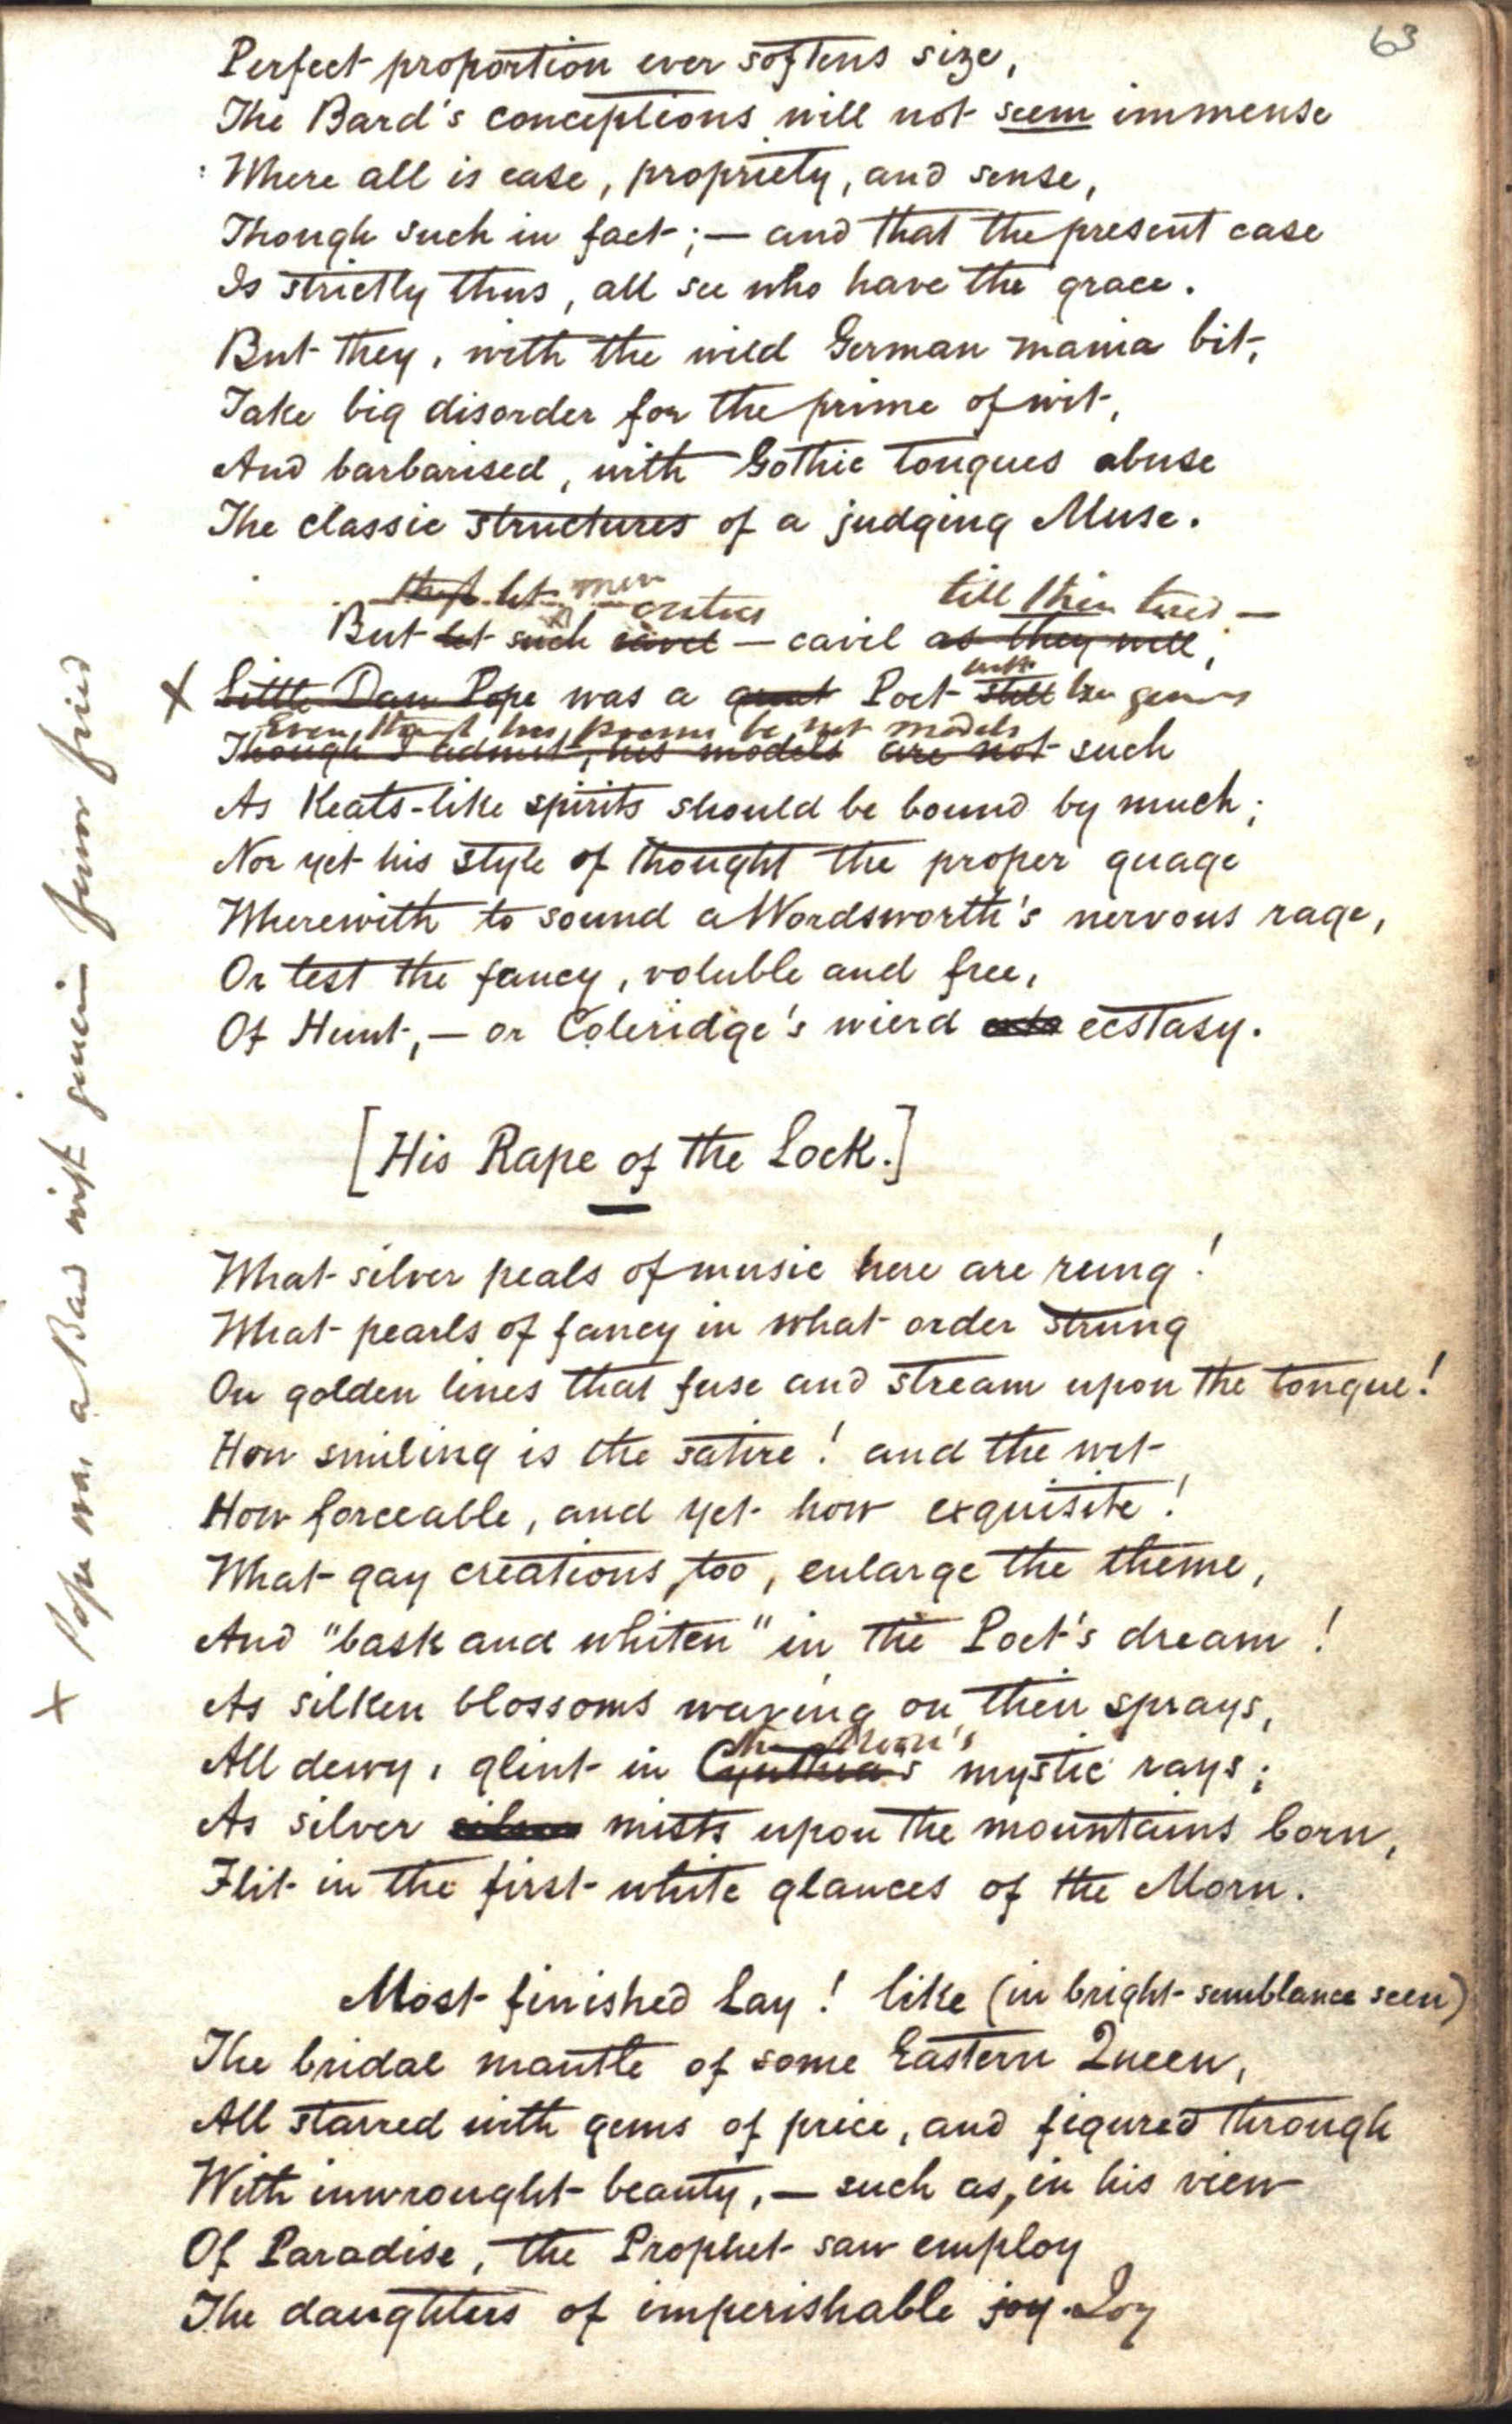 63
Perfect proportion ever softens size,
The Bard's conceptions will not seem immense
Where all is ease, propriety, and sense,
Though such in fact;—and that the present case
Is strictly thus, all see who have the grace.
But they, with the wild German mania bit,
Take big disorder for the prime of wit,
And barbarised, with Gothic tongues abuse
The classic structures of a judging Muse.
let men critics till then tired —
But let such cavil — cavil as they will,
still
X Little Dan Pope was a great Poet still
Even his poems be not models
Though I admit, his models are not such
As Keats-like spirits should be bound by much;
Nor yet his style of thought the proper guage
Wherewith to sound a Wordsworth's nervous rage,
Or test the fancy, voluble and free,
Of Hunt,—or Coleridge's wierd ecstasy.
[His Rape of the Lock.]
What silver peals of music here are rung!
What pearls of fancy in what order strung
On golden lines that fuse and stream upon the tongue!
How smiling is the satire! and the wit
How forceable, and yet how exquisite!
What gay creations, too, enlarge the theme,
And "bask and whiten" in the Poet's dream!
As silken blossoms waving on their sprays,
the Moon's
All dewy, glint in Cynthia's mystic rays;
As silver mists upon the mountains born,
Flit in the first white glances of the Morn.
Most finished Lay! like (in bright semblance seen)
The bridal mantle of some Eastern Queen,
All starred with gems of price, and figured through
With inwrought beauty,—such as, in his view
Of Paradise, the Prophet saw employ
The daughters of imperishable joy. Joy
X Pope was a Bard